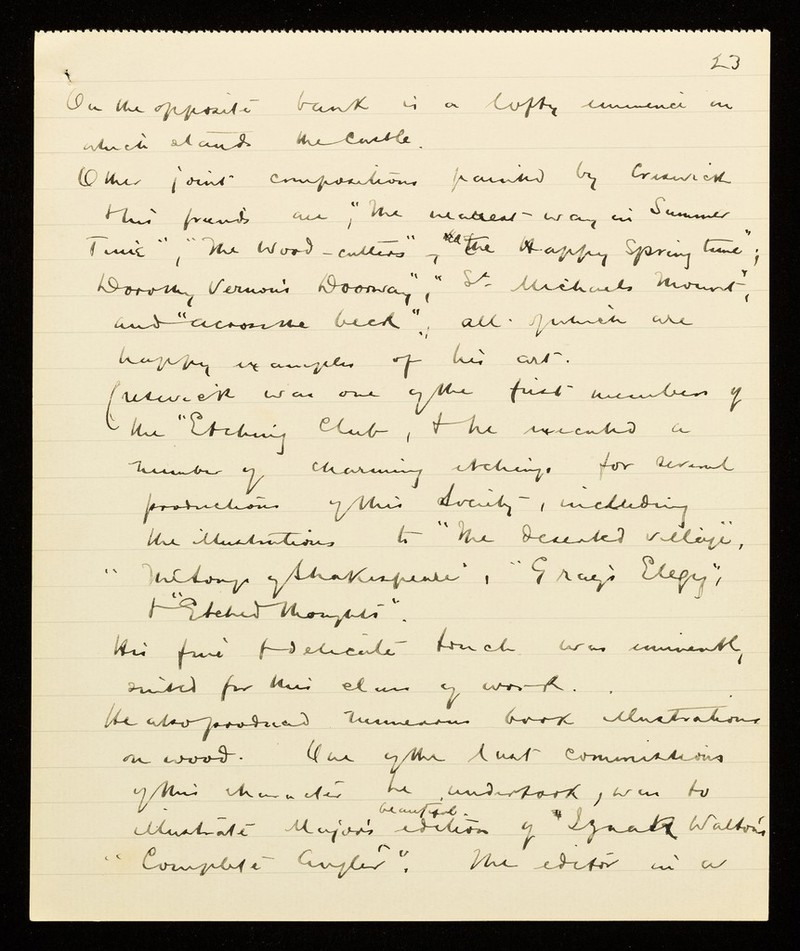 23
On the opposite bank is a lofty eminence on
which stands the Castle.
Other joint compositions painted by Creswick
& his friends are, "The nearest way in Summer
Time", "The Wood-cutters", "The Happy Spring time";
Dorothy Vernon's Doorway", "St Michaels Mount",
and "across the beck"; all of which are
happy examples of his art.
Creswick was one of the first members of
the "Etching Club, & he executed a
number of charming etchings for several
productions of this Society, including
the illustrations to "The deserted village",
"The Songs of Shakespeare", "Gray's Elegy",
& "Etched Thoughts".
His fine & delicate touch was eminently
suited for this class of work.
He also produced numerous book illustrations
on wood. One of the last commissions
of this character he undertook, was to
beautiful
illustrate Major's edition of "Izaak Walton's
"Complete Angler". The editor in a